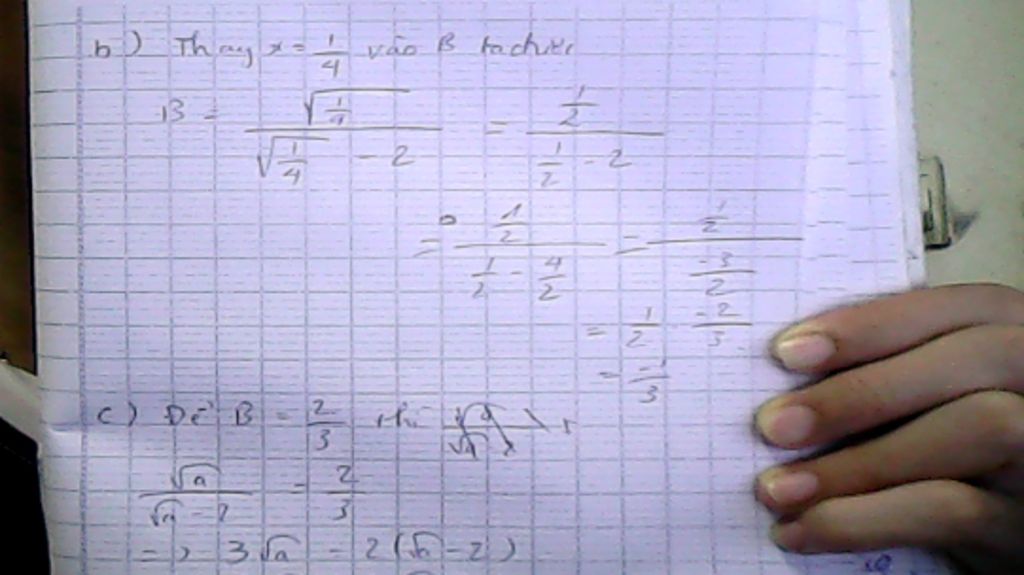 b) Thay x = 1/4 vào B ta được
B = √(1/4) / (√(1/4) - 2) = (1/2) / (1/2 - 2)
= (1/2) / (1/2 - 4/2) = (1/2) / (-3/2)
= 1/2 · -2/3
= -1/3
c) Để B = 2/3 thì
√a / (√a - 2) = 2/3
=> 3√a = 2(√a - 2)